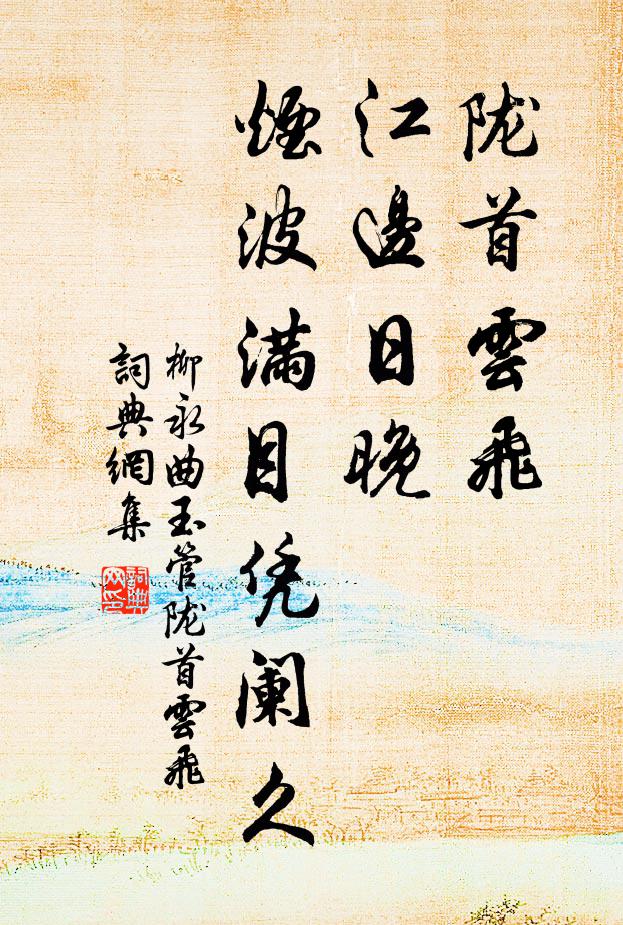 陇首雲飛
江邊日晚
煙波滿目凭阑久
柳永曲玉管陇首雲飛
詞典網集
詞典网印